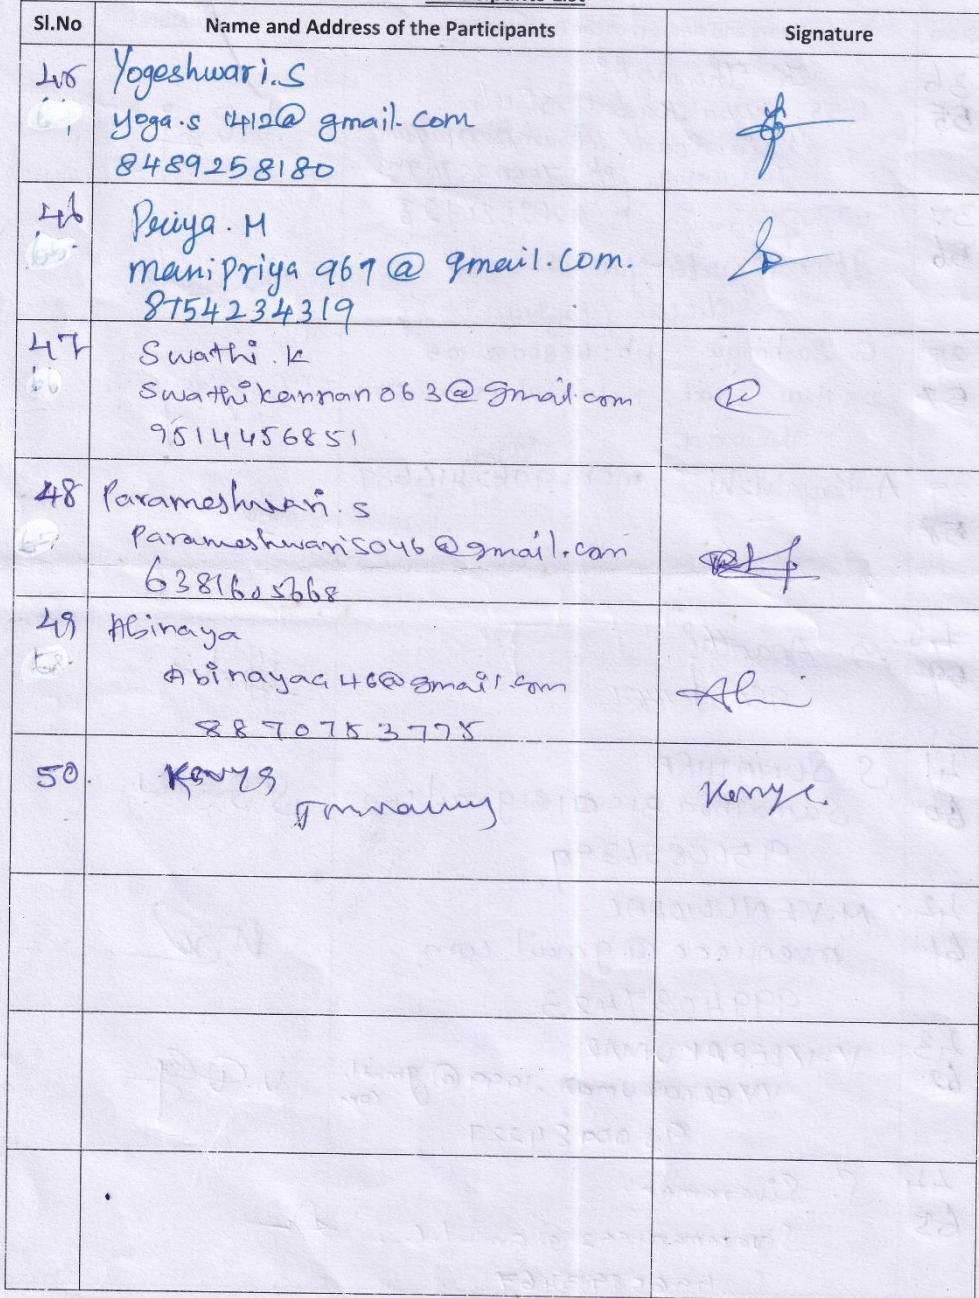 Sl.No Name and Address of the Participants Signature
45 Yogeshwari.S
yoga.s 1412@ gmail.com
8489258180
46 Priya.M
manipriya 967@ gmail.com.
8754234319
47 Swathi.K
Swathikannan063@gmail.com
9514456851
48 Parameshwari.s
Parameshwari5046@gmail.com
6381605668
49 Abinaya
Abinayaa46@gmail.com
8870753775
50.